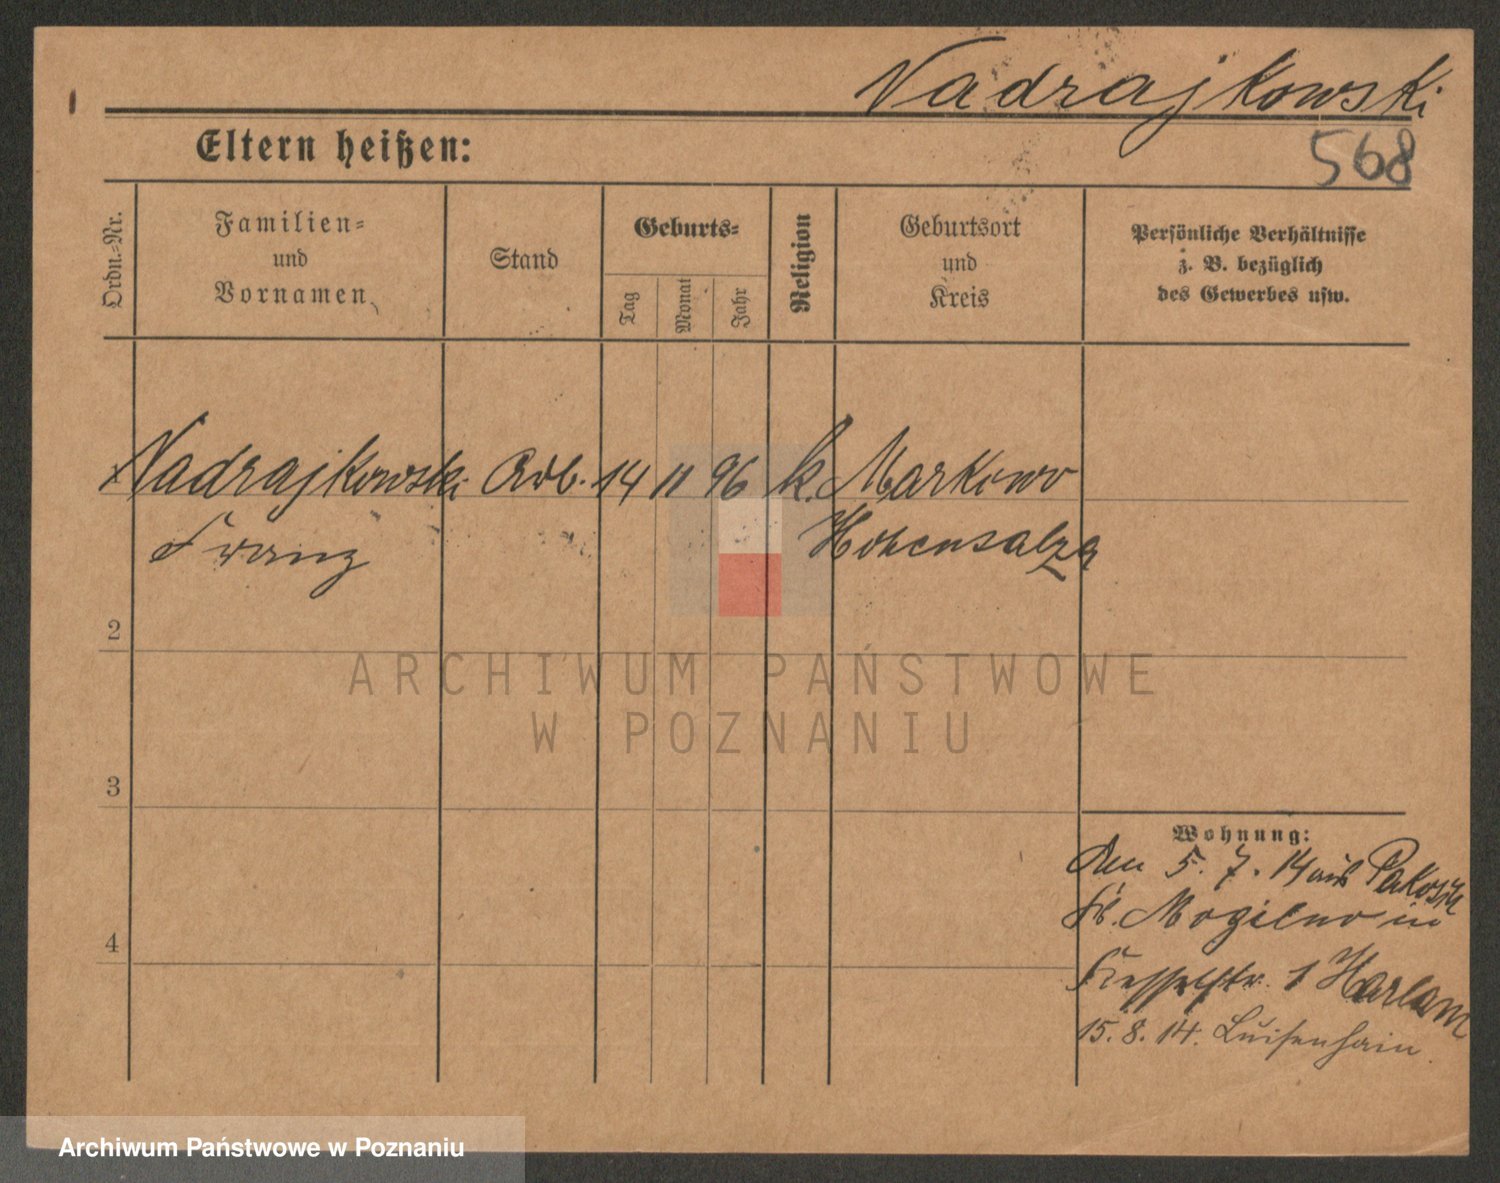 Nadrajkowski
Eltern heißen:
568
Ordn.-Nr.
Familien-
und
Vornamen
Stand
Geburts-
Tag
Monat
Jahr
Religion
Geburtsort
und
Kreis
Persönliche Verhältnisse
z. B. bezüglich
des Gewerbes usw.
Nadrajkowski Arb. 14 11 96 k. Markowo
Franz Hohensalza
2
ARCHIWUM PAŃSTWOWE
W POZNANIU
3
Wohnung:
Den 5. 7. 14 aus Pakosch
Kr. Mogilno in
1 Harlam
4
15. 8. 14. Luisenhain.
Archiwum Państwowe w Poznaniu